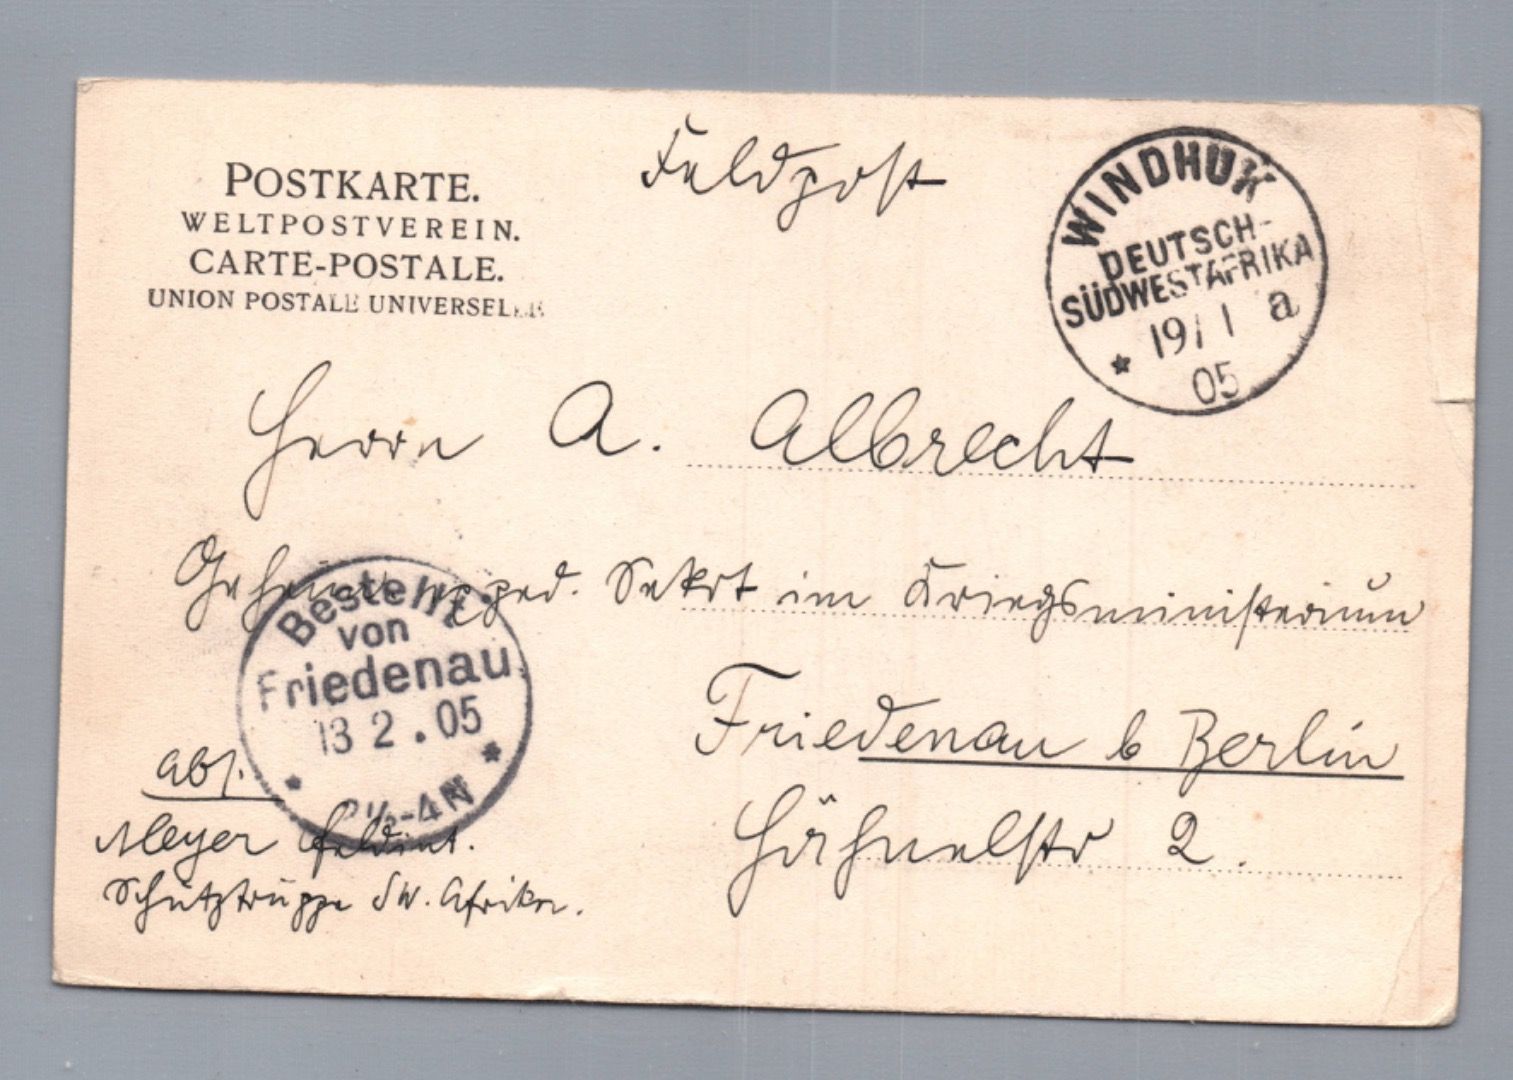 POSTKARTE.
WELTPOSTVEREIN.
CARTE-POSTALE.
UNION POSTALE UNIVERSELLE
Feldpost
WINDHUK
DEUTSCH-
SÜDWESTAFRIKA
19/1 a
05
Herrn A. Albrecht
Geheim exped. Sekrt im Kriegsministerium
Bestellt
von
Friedenau
13 2.05
2½-4N
Friedenau b Berlin
Hähnelstr 2.
Abs.
Meyer Feldint.
Schutztruppe SW. Afrika.